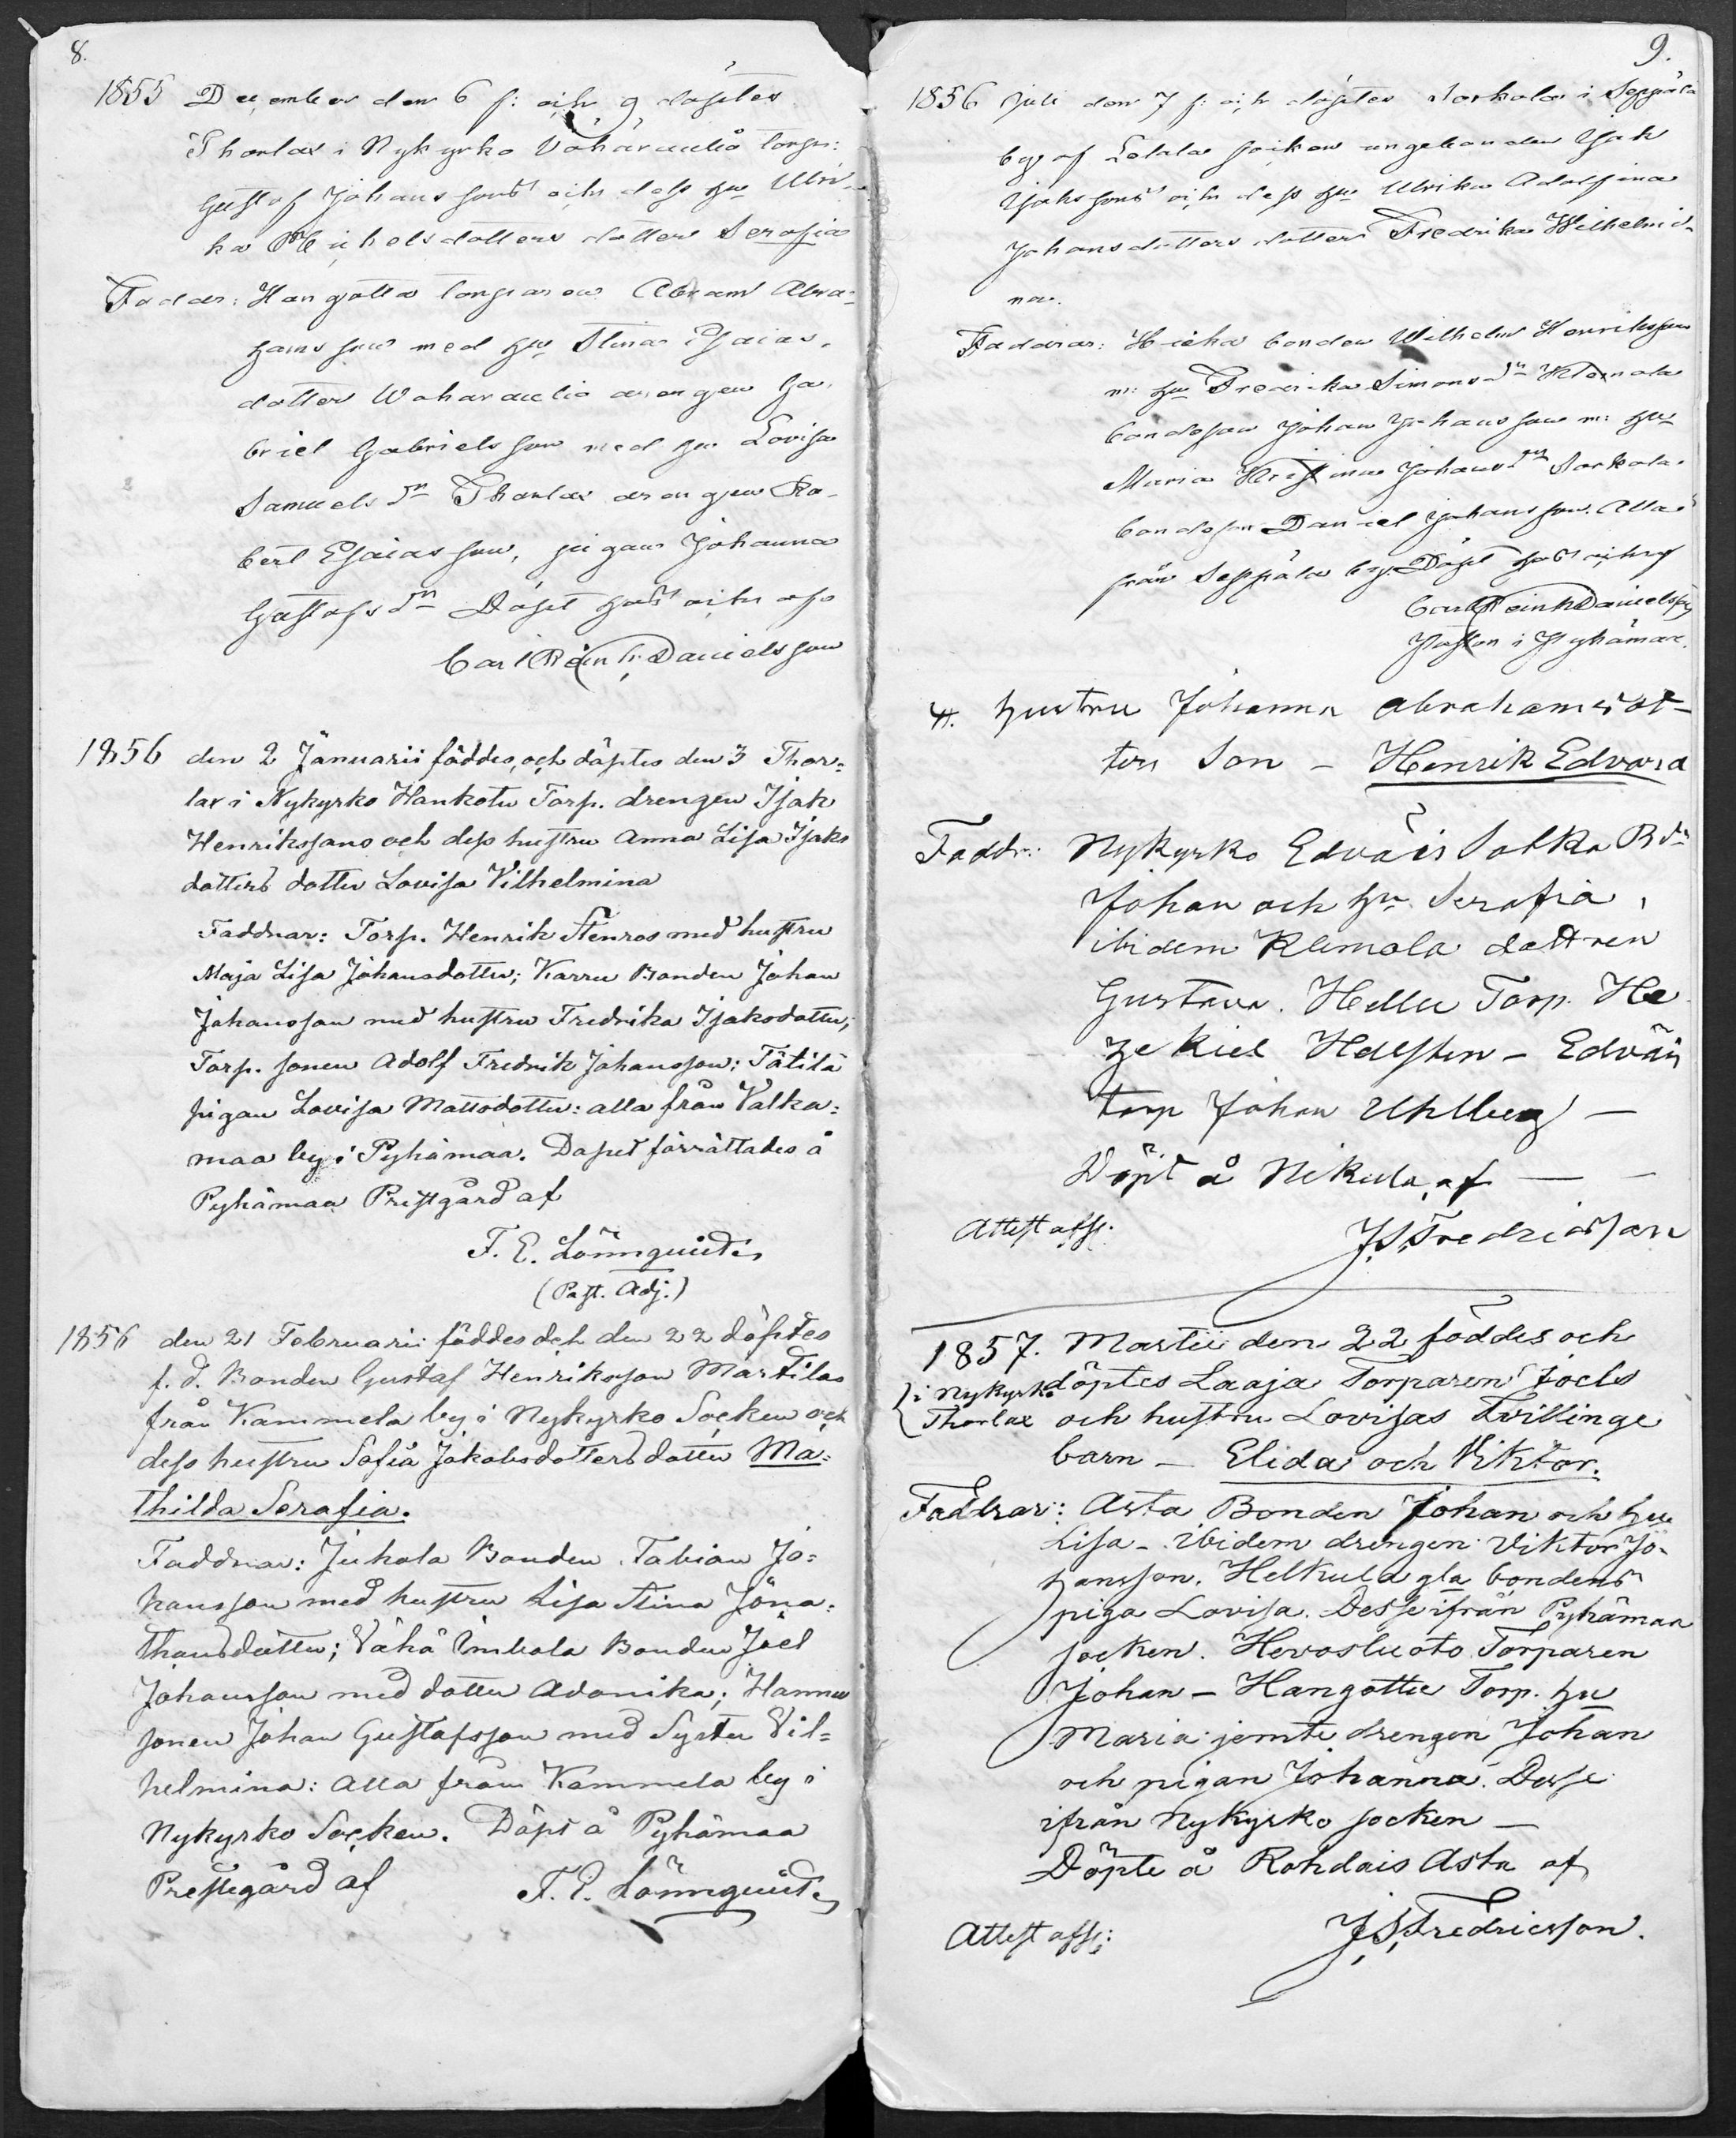 8.
1855 December den 6 f: och 9 döptes
Thorlax i Nykyrko Vaharaulio torp:
Gustaf Johanssons och dess hu Ulri-
ka Michelsdotters dotter Serafia
Faddar: Hangotta torparen Abram Abra-
hamsson med hu Stina Esaias-
dotter Waharaulio drengen Ga-
briel Gabrielsson med hu Lovisa
Samuels dr Thorlax drengen Ro-
bert Esaiasson, pigan Johanna
Gustafs dr Döpt har och af
Carl Reinh: Danielsson
1856 den 2 Januarii föddes, och döptes den 3 Thor=
lax i Nykyrko Hankotu Torp. drengen Isak
Henrikssons och dess hustru Anna Lisa Isaks
dotters dotter Lovisa Vilhelmina
Faddrar: Torp. Henrik Stenros med hustru
Maja Lisa Johansdotter; Karru Bonden Johan
Johansson med hustru Fredrika Isaksdotter;
Torp. sonen Adolf Fredrik Johansson; Tätilä
pigan Lovisa Mattsdotter: alla från Valka=
maa by i Pyhämaa. Dopet förrättades å
Pyhämaa Prestgård af
F. E. Lönnquist
(Past. Adj.)
1856 den 21 Februarii föddes och den 22 döptes
f. d. Bonden Gustaf Henriksson Martilas
från Kammela by i Nykyrko Socken och
dess hustru Sofia Jakobsdotters dotter Ma=
thilda Serafia.
Faddrar: Juhola Bonden Fabian Jo=
hansson med hustru Lisa Stina Jona=
thansdotter; Vähä Bonden Joel
Johansson med dotter Adamika; Hannu
sonen Johan Gustafsson med Syster Vil=
helmina: alla från Kammela by i
Nykyrko Socken. Döpt å Pyhämaa
Prestegård af F. E. Lönnquist
9.
1856 Juli den 7 f: och döptes Sorkola i Seppälä
by af Letala socken unge bonden Isak
Isakssons och dess hu Ulrika Adolfina
Johansdotters dotter Fredrika Wilhelmi-
na.
Faddrar: Heicka bonden Wilhelm Henriksson
m: hu Fredrika Simons dr Klemola
bondeson Johan Johansson m: hu
Maria Kristina Johans dr Sorkola
bondeson Daniel Johansson. Alla
från Seppälä by. Döpt har och af
Carl Reinh Danielsson
Pastor i Pyhämaa.
4. hustru Johanna Abrahamsdot-
ters Son – Henrik Edvard
Faddr: Nykyrko Edväis Salka Bdn
Johan och hu Serafia,
ibidem Klemola dottren
Gustava. Hellu Torp. He
zekiel Hellsten – Edväis
torp Johan Uhlberg –
Döpt å Nikula, af – –
Attest afsl: J. S. Fredricsson
1857. Martii den 22 föddes och
i Nykyrko döptes Laaja Torparen Joels
Thorlax och hustru Lovisas Tvillinge
barn – Elida och Viktor.
Faddrar: Asta Bonden Johan och hu
Lisa – ibidem drengen Viktor Jo-
hansson. Helkula gla bondens
piga Lovisa. Desse ifrån Pyhämaa
socken. Hevosluoto Torparen
Johan – Hangottu Torp. hu
Maria jemte drengen Johan
och pigan Johanna. Desse
ifrån Nykyrko socken –
Döpte å Rohdais Asta af
Attest afsl: J. S. Fredricsson.